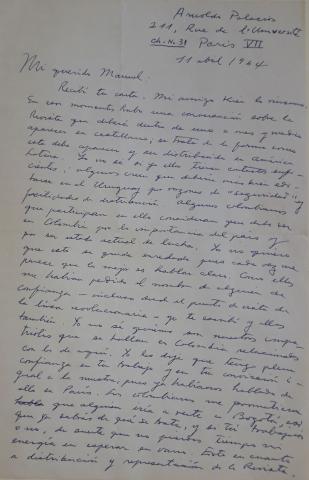 Arnoldo Palacios
211, Rue de l'Université
ch. No. 31 Paris VII
11 abril 1964
Mi querido Manuel:
Recibí tu carta. Mi amigo
En ese momento hubo una conversación sobre la
Revista que deberá dentro de uno o mes y medio
aparecer en castellano, se trata de la forma como
esta debe aparecer y ser distribuida en América
Latina. Yo no sé si ellos tienen contratos
; algunos creen que debería más bien
en el Uruguay por razones de "seguridad" y
facilidades de distribución. Algunos colombianos
que participan en ella consideran que debe ser
en Colombia por la importancia del país y
por su estado actual de lucha. Yo no quiero
que esto se quede enredado pues cada vez me
parece que lo mejor es hablar claro. Como ellos
me habían pedido el nombre de alguien de
confianza - incluso desde el punto de vista de
la línea revolucionaria - yo te escribí y ellos
también. Yo no sé quiénes son nuestros
que se hallan en Colombia relacionados
con lo de aquí. Yo les dije que tengo plena
confianza en tu trabajo y en tu conversión
a la nuestra, pues ya habíamos hablado de
ello en París. Los colombianos me prometieron
que alguien iría a verte a Bogotá,
que ya sabrías de qué se trata, y si tú trabajabas
o no, de suerte que no pierdas tiempo ni
energía en esperar en vano. Esto en cuanto
a distribución y representación de la Revista.